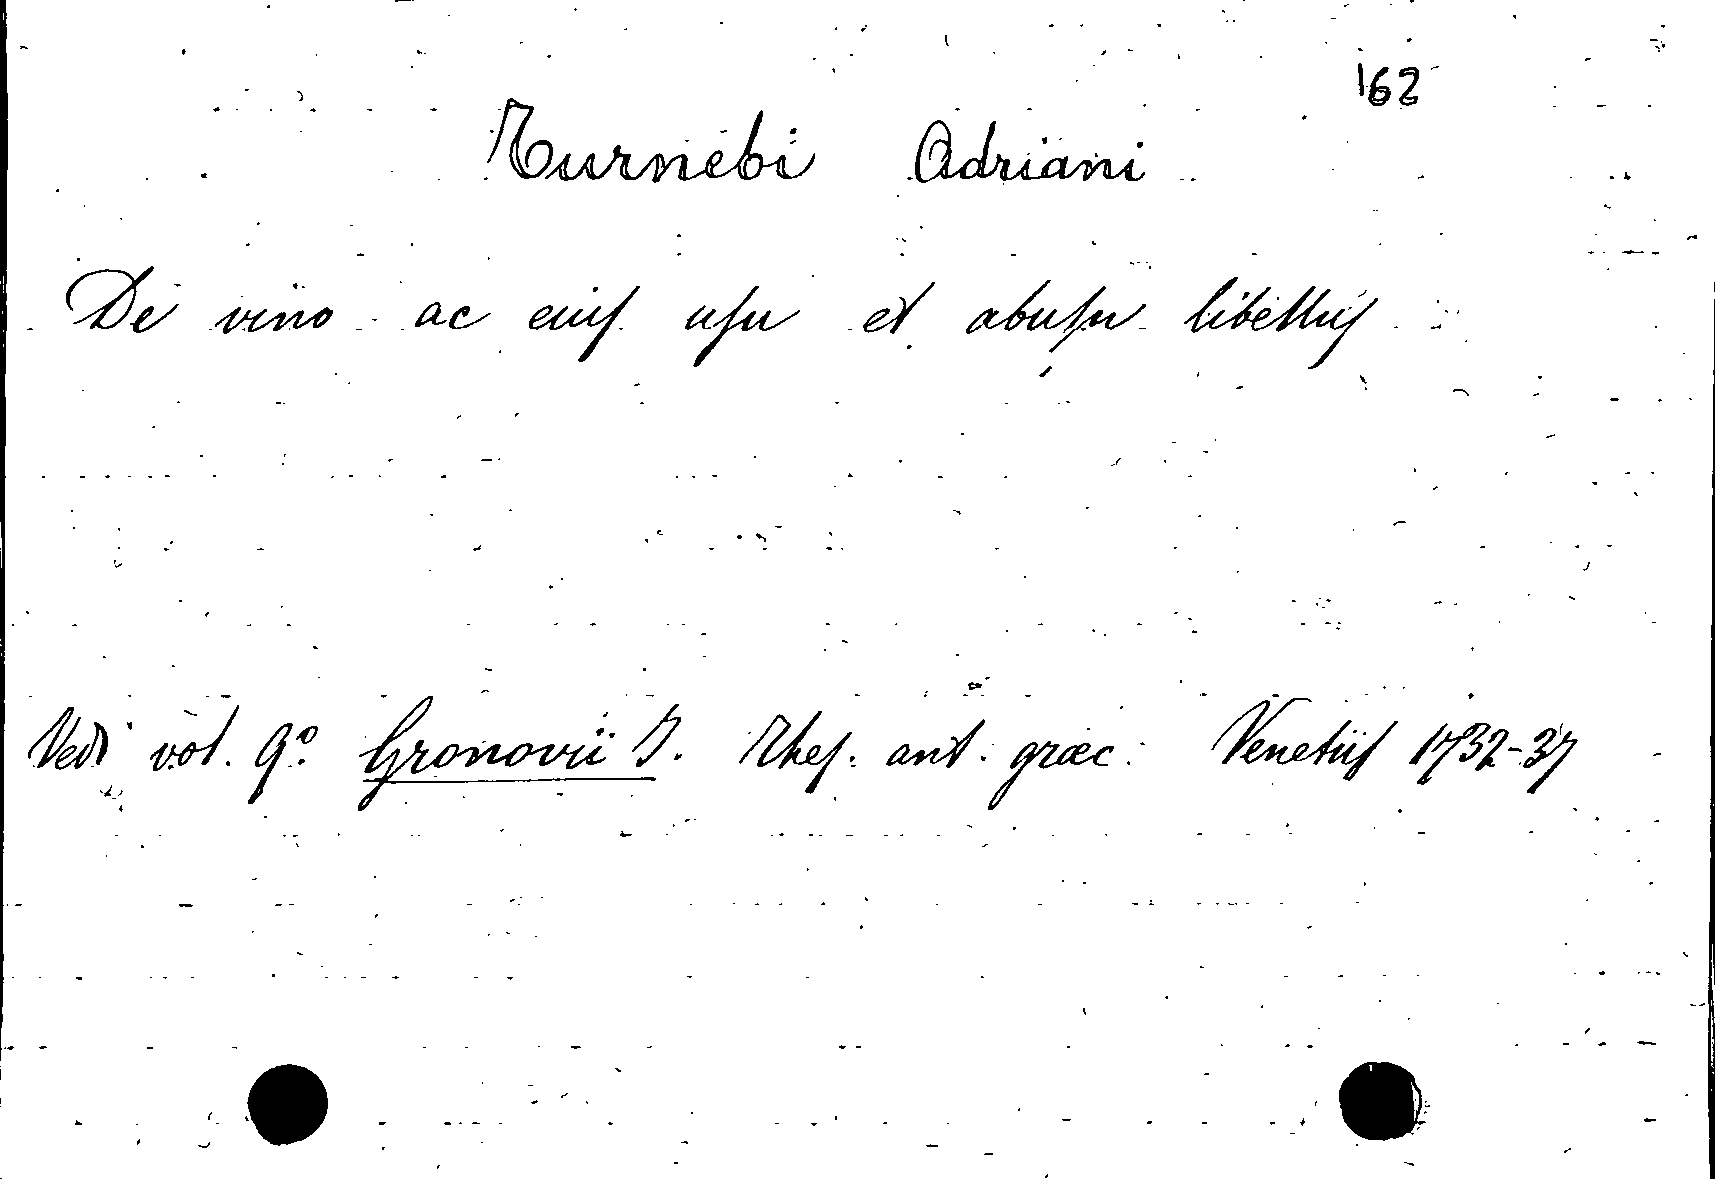 162
Turnebi Adriani
De vino ac eius usu et abusu libellus
Vedi vol. 9º Gronovii J. Thes. ant. graec. Venetiis 1732-37